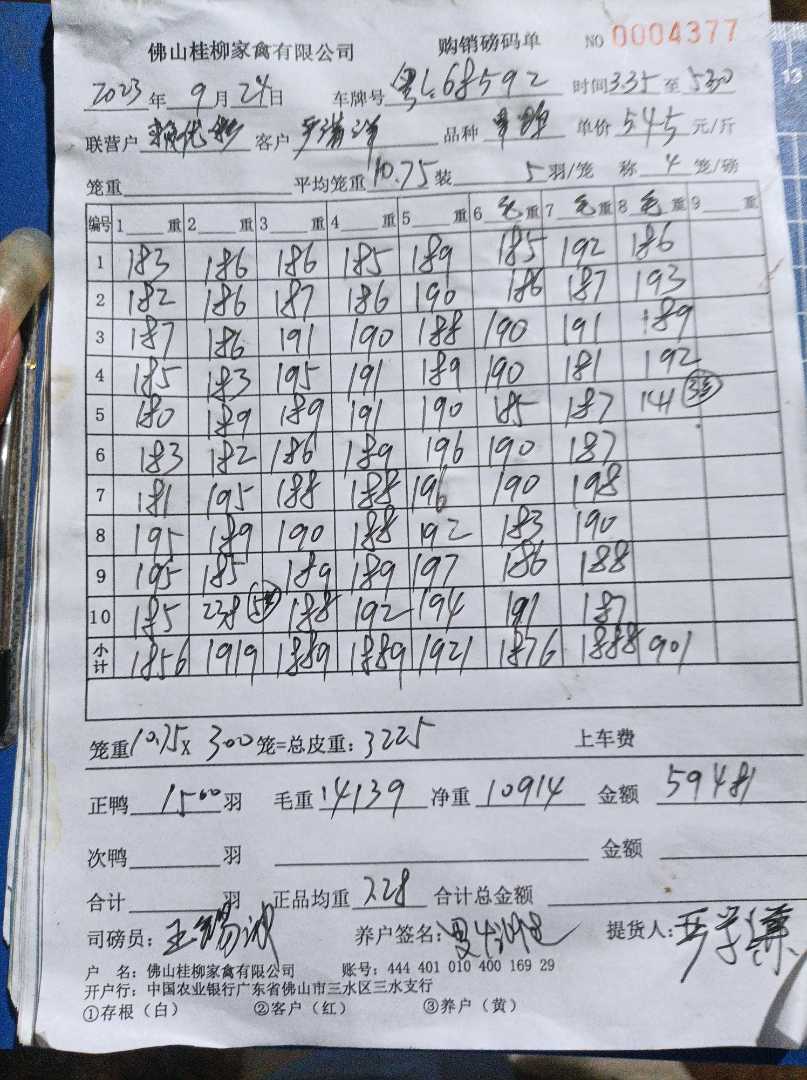 佛山桂柳家禽有限公司 购销磅码单 NO 0004377
2023年 9月 24日 车牌号 粤L68592 时间 3.35 至 530
联营户 客户 品种 单价 5.45 元/斤
笼重 平均笼重 10.75 装 5 羽/笼 称 4 笼/磅
编号 1 重 2 重 3 重 4 重 5 重 6 毛重 7 毛重 8 毛重 9 重
1 183 186 186 185 189 185 192 186
2 182 186 187 186 190 186 187 193
3 187 186 191 190 188 190 191 189
4 185 183 195 191 189 190 181 192
5 180 189 189 191 190 185 187 141
6 183 182 186 189 196 190 187
7 181 195 188 188 196 190 198
8 195 189 190 188 192 183 190
9 195 185 189 189 197 186 188
10 185 238 188 192 194 191 187
小计 1856 1919 1889 1889 1921 1876 1888 901
笼重 10.75 x 300 笼=总皮重: 3225 上车费
正鸭 1500 羽 毛重 14139 净重 10914 金额 59481
次鸭 羽 金额
合计 羽 正品均重 7.28 合计总金额
司磅员: 养户签名: 提货人:
户 名: 佛山桂柳家禽有限公司 账号: 444 401 010 400 169 29
开户行: 中国农业银行广东省佛山市三水区三水支行
①存根（白） ②客户（红） ③养户（黄）
13